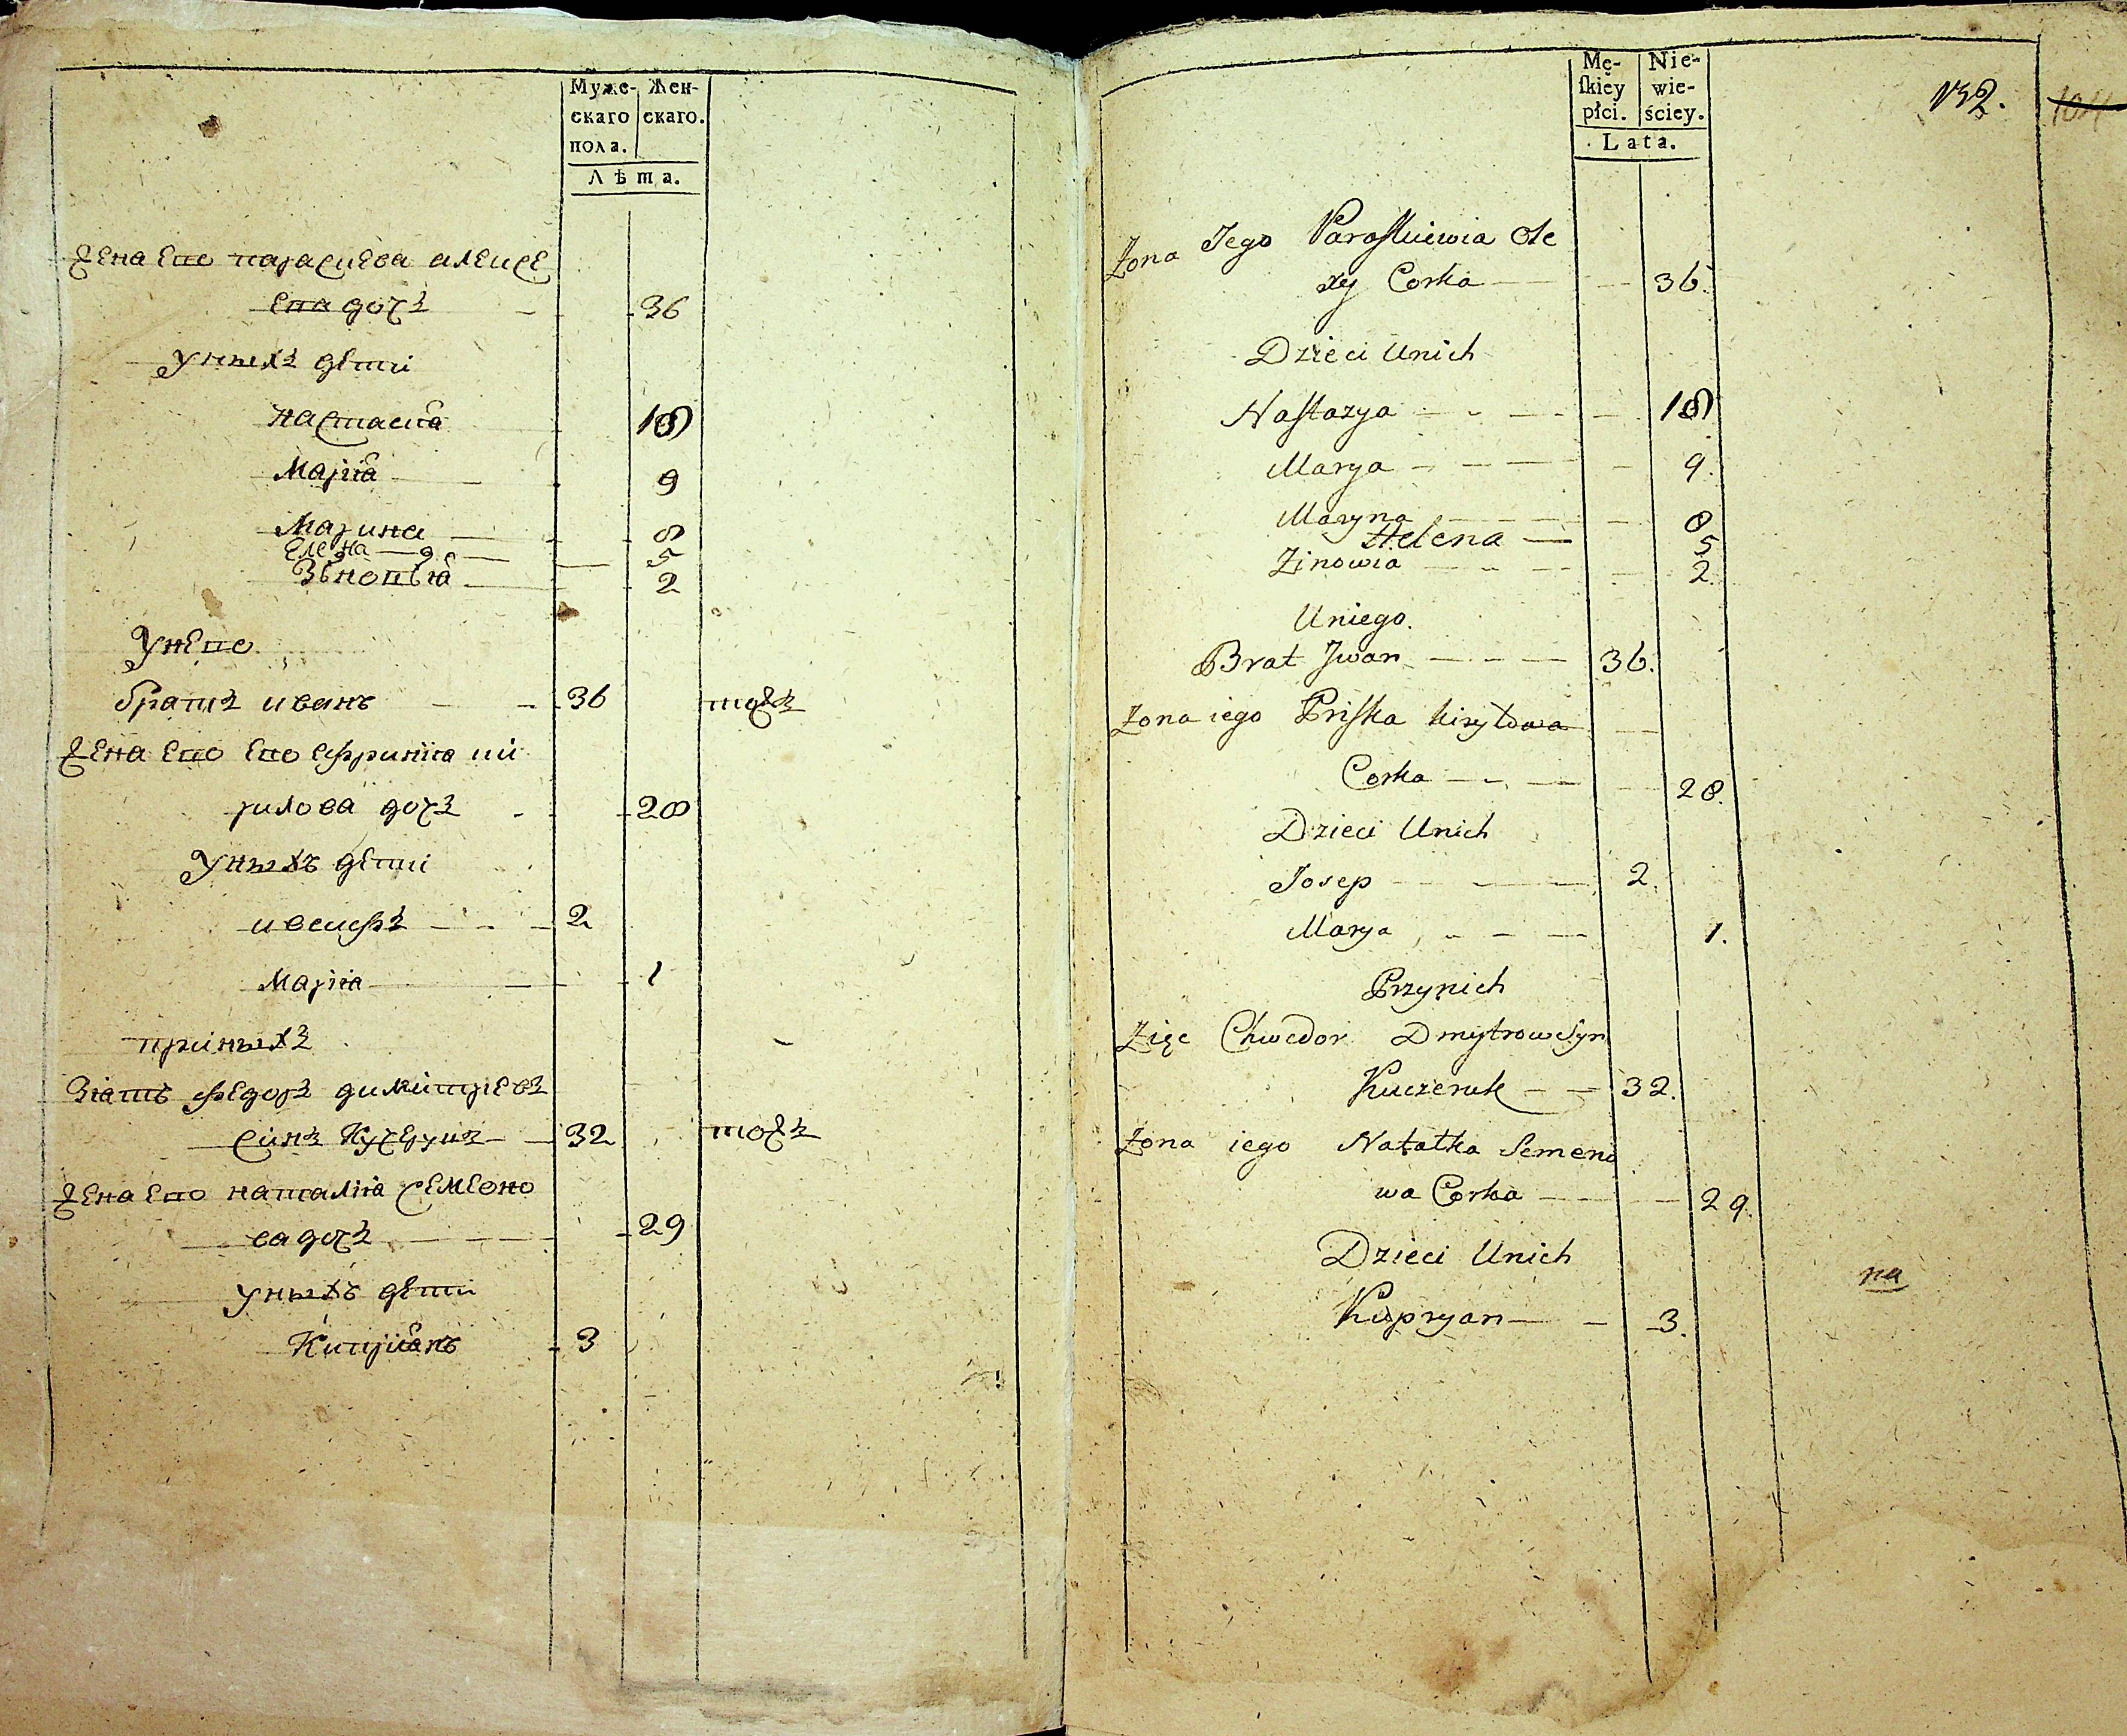 Муже-
скаго
пола.
Жен-
скаго.
Лѣта.
жена его параскева алексе
ева дочъ 36
Уныхъ дети
настасиа 18
Мариа 9
Марина 8
Елена 5
Зѣновѣиа 2
Унего
братъ иванъ 36 тожъ
жена его его ефриниа ки
рилова дочъ 28
Уныхъ дети
иосифъ 2
Мариа 1
приныхъ
Зіать федоръ димитриевъ
синъ Кучерукъ 32 тожъ
жена его наталиа семеоно
ва дочъ 29
Уныхъ дети
Киприанъ 3
Mę-
ſkiey
płci.
Nie-
wie-
ściey.
Lata.
132.
104
Żona Jego Paraſkiewia Ole
xy Corka 36.
Dzieci Unich
Naſtazya 18
Marya 9.
Maryna 8
Helena 5
Zinowia 2.
Uniego.
Brat Jwan 36.
Żona iego Priſka kiryłowa
Corka 28.
Dzieci Unich
Josep 2.
Marya 1.
Przynich
Zięc Chwedor Dmytrow Syn
Kuczeruk 32.
Żona iego Natałka Semeno
wa Corka 29.
Dzieci Unich
Kupryan 3.
na